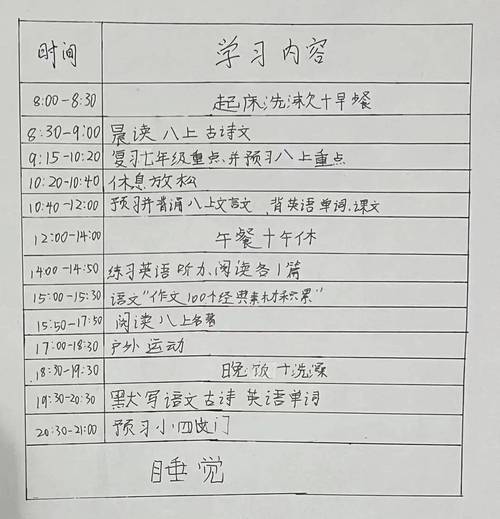 时间 学习内容
8:00-8:30 起床洗漱+早餐
8:30-9:00 晨读八上古诗文
9:15-10:20 复习七年级重点并预习八上重点
10:20-10:40 休息放松
10:40-12:00 预习并背诵八上文言文、背英语单词、课文
12:00-14:00 午餐+午休
14:00-14:50 练习英语听力、阅读各1篇
15:00-15:30 语文"作文100个经典素材积累"
15:50-17:50 阅读八上名著
17:00-18:30 户外运动
18:30-19:30 晚饭+洗澡
19:30-20:30 默写语文古诗 英语单词
20:30-21:00 预习小四门
睡觉